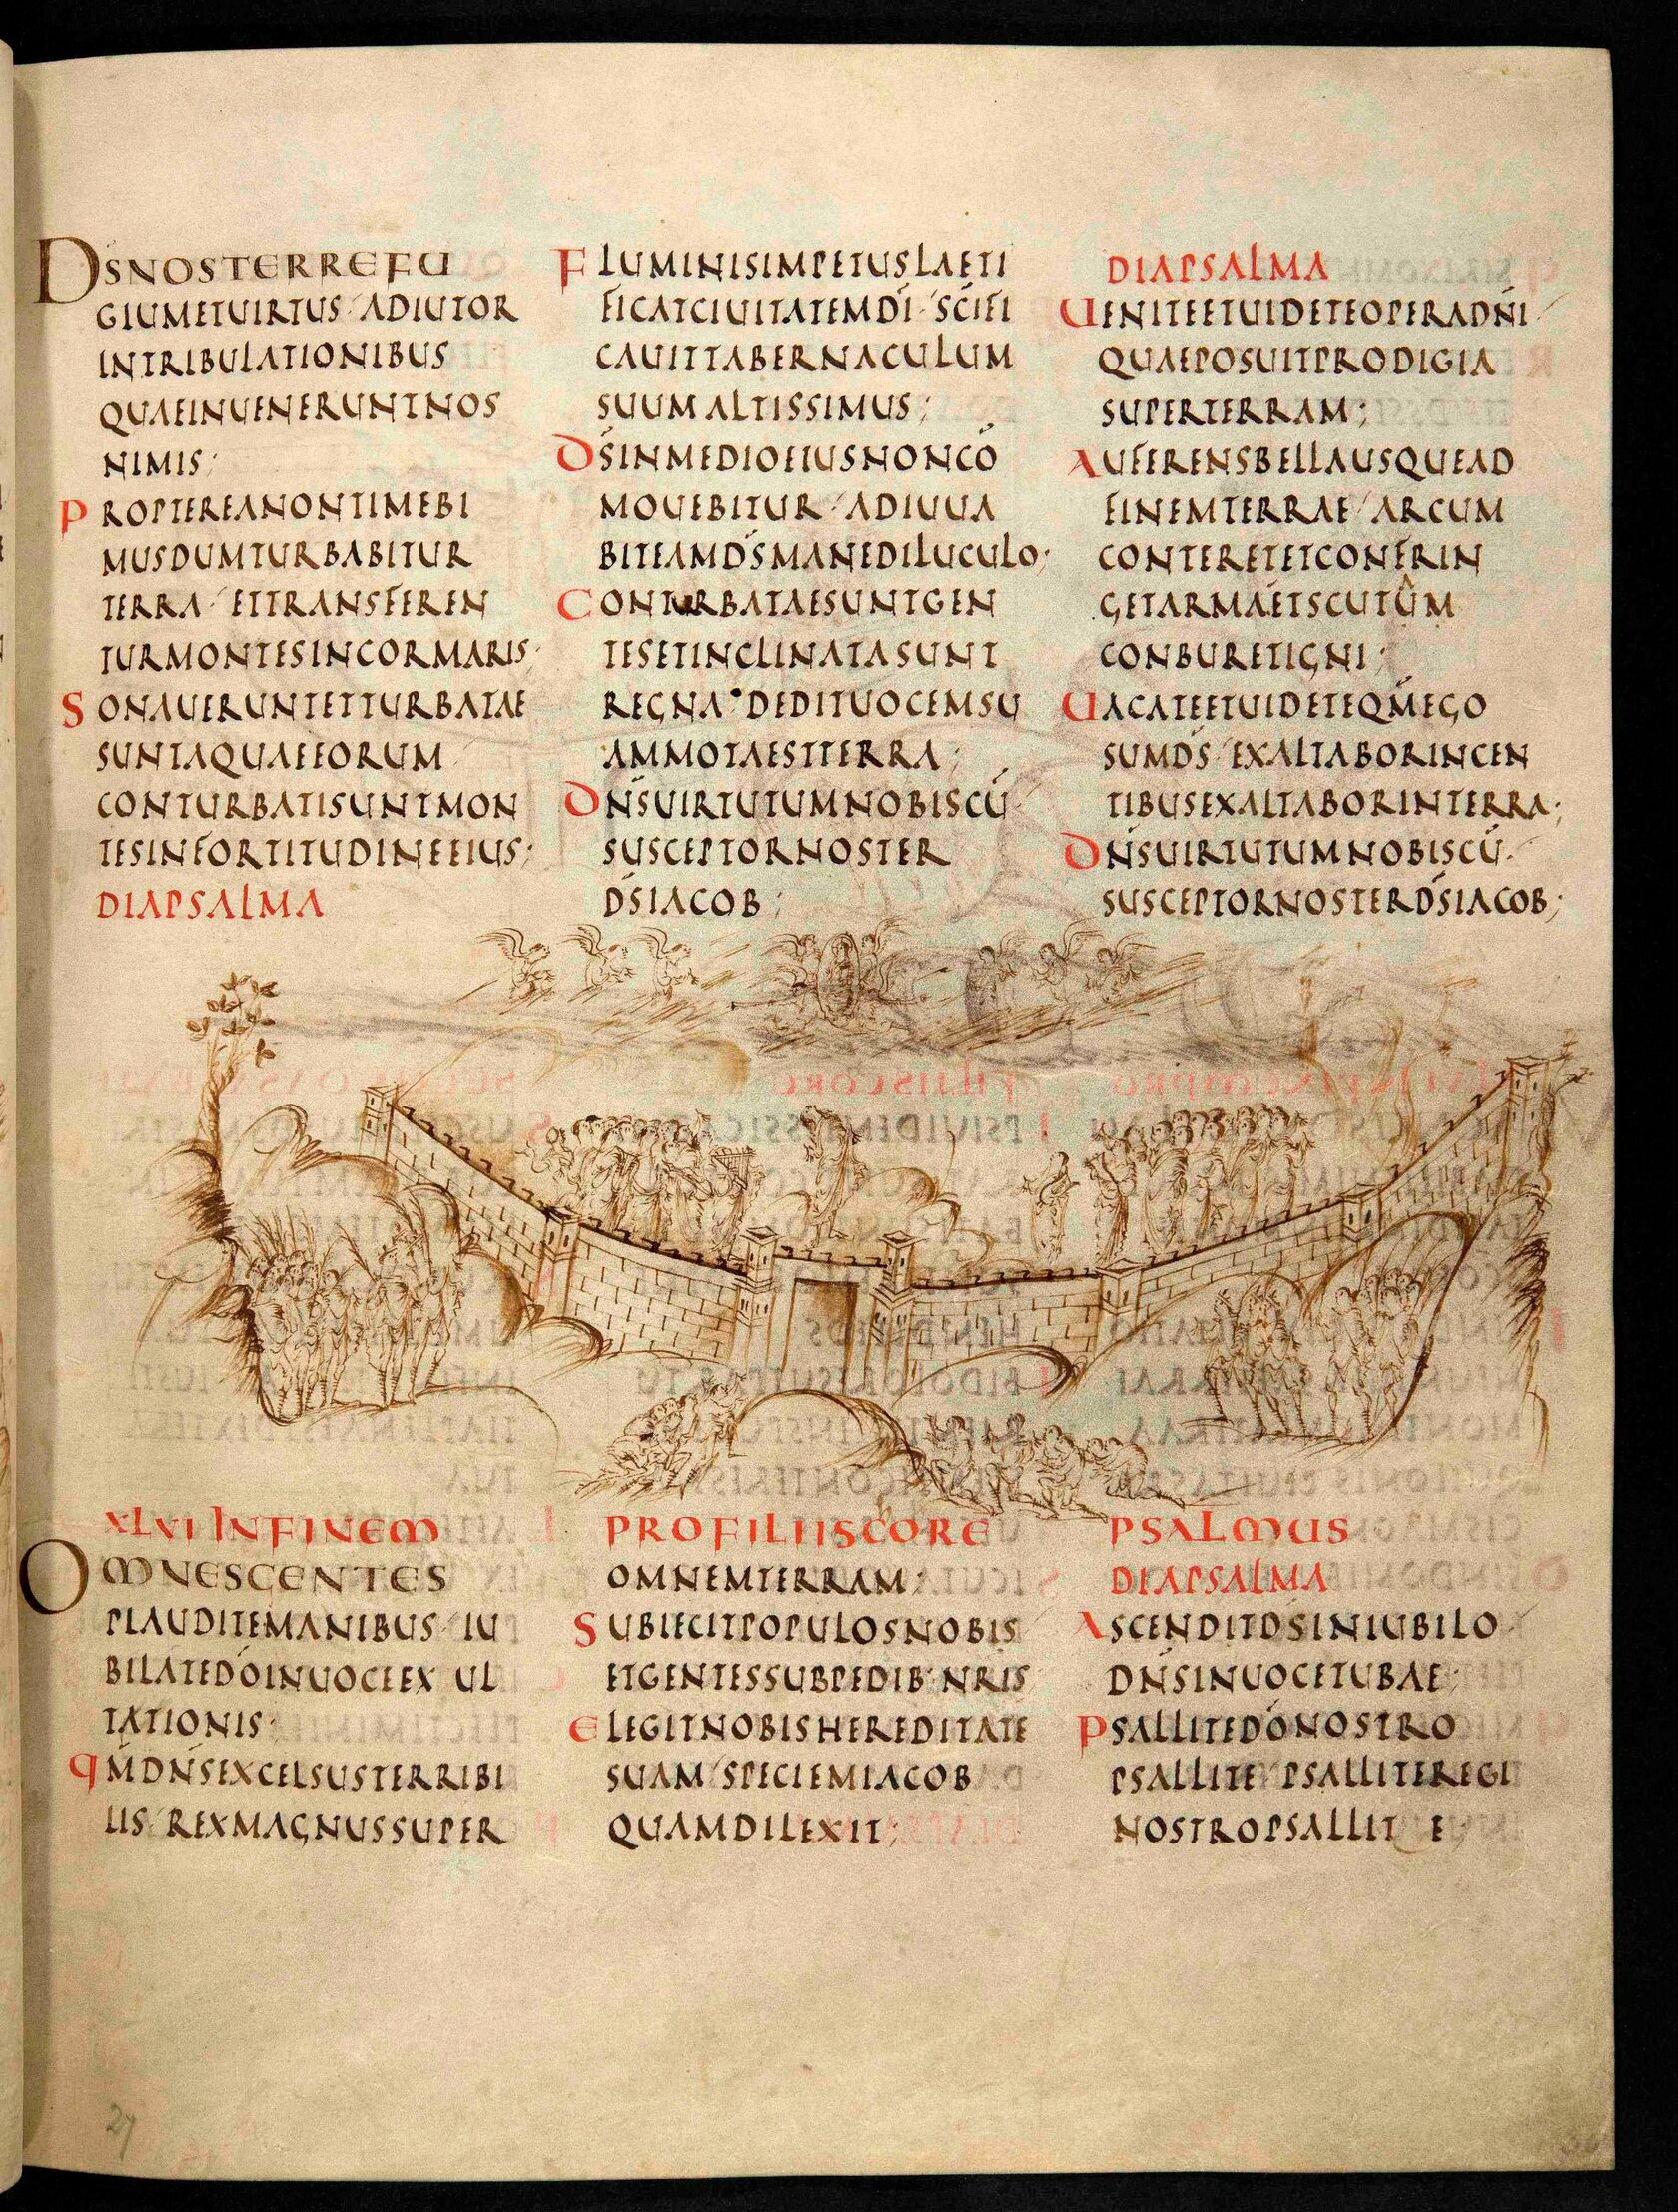 DS̄NOSTERREFU
GIUMETUIRTUS· ADIUTOR
INTRIBULATIONIBUS
QUAEINUENERUNTNOS
NIMIS;
PROPTEREANONTIMEBI
MUSDUMTURBABITUR
TERRA· ETTRANSFEREN
TURMONTESINCORMARIS;
SONAUERUNTETTURBATAE
SUNTAQUAEEORUM
CONTURBATISUNTMON
TESINFORTITUDINEEIUS;
DIAPSALMA
FLUMINISIMPETUSLAETI
FICATCIUITATEMDĪ· SC̄IFI
CAUITTABERNACULUM
SUUMALTISSIMUS;
DS̄INMEDIOEIUSNONCŌ
MOUEBITUR· ADIUUA
BITEAMDS̄MANEDILUCULO;
CONTURBATAESUNTGEN
TESETINCLINATASUNT
REGNA· DEDITUOCEMSU
AMMOTAESTTERRA;
DN̄SUIRTUTUMNOBISCŪ·
SUSCEPTORNOSTER
DS̄IACOB;
DIAPSALMA
UENITEETUIDETEOPERADN̄I·
QUAEPOSUITPRODIGIA
SUPERTERRAM;
AUFERENSBELLAUSQUEAD
FINEMTERRAE· ARCUM
CONTERETETCONFRIN
GETARMAETSCUTŪM
CONBURETIGNI;
UACATEETUIDETEQM̄EGO
SUMDS̄· EXALTABORINGEN
TIBUSEXALTABORINTERRA;
DN̄SUIRTUTUMNOBISCŪ·
SUSCEPTORNOSTERDS̄IACOB;
XLVI INFINEM PROFILIISCORE PSALMUS
OMNESGENTES
PLAUDITEMANIBUS· IU
BILATEDŌINUOCEEX UL
TATIONIS;
QM̄DN̄SEXCELSUSTERRIBI
LIS· REXMAGNUSSUPER
OMNEMTERRAM;
SUBIECITPOPULOSNOBIS
ETGENTESSUBPEDIB· NRIS
ELEGITNOBISHEREDITATE
SUAM· SPECIEMIACOB
QUAMDILEXIT;
DIAPSALMA
ASCENDITDS̄INIUBILO·
DN̄SINUOCETUBAE;
PSALLITEDŌNOSTRO
PSALLITE· PSALLITEREGI
NOSTROPSALLIT E;
27